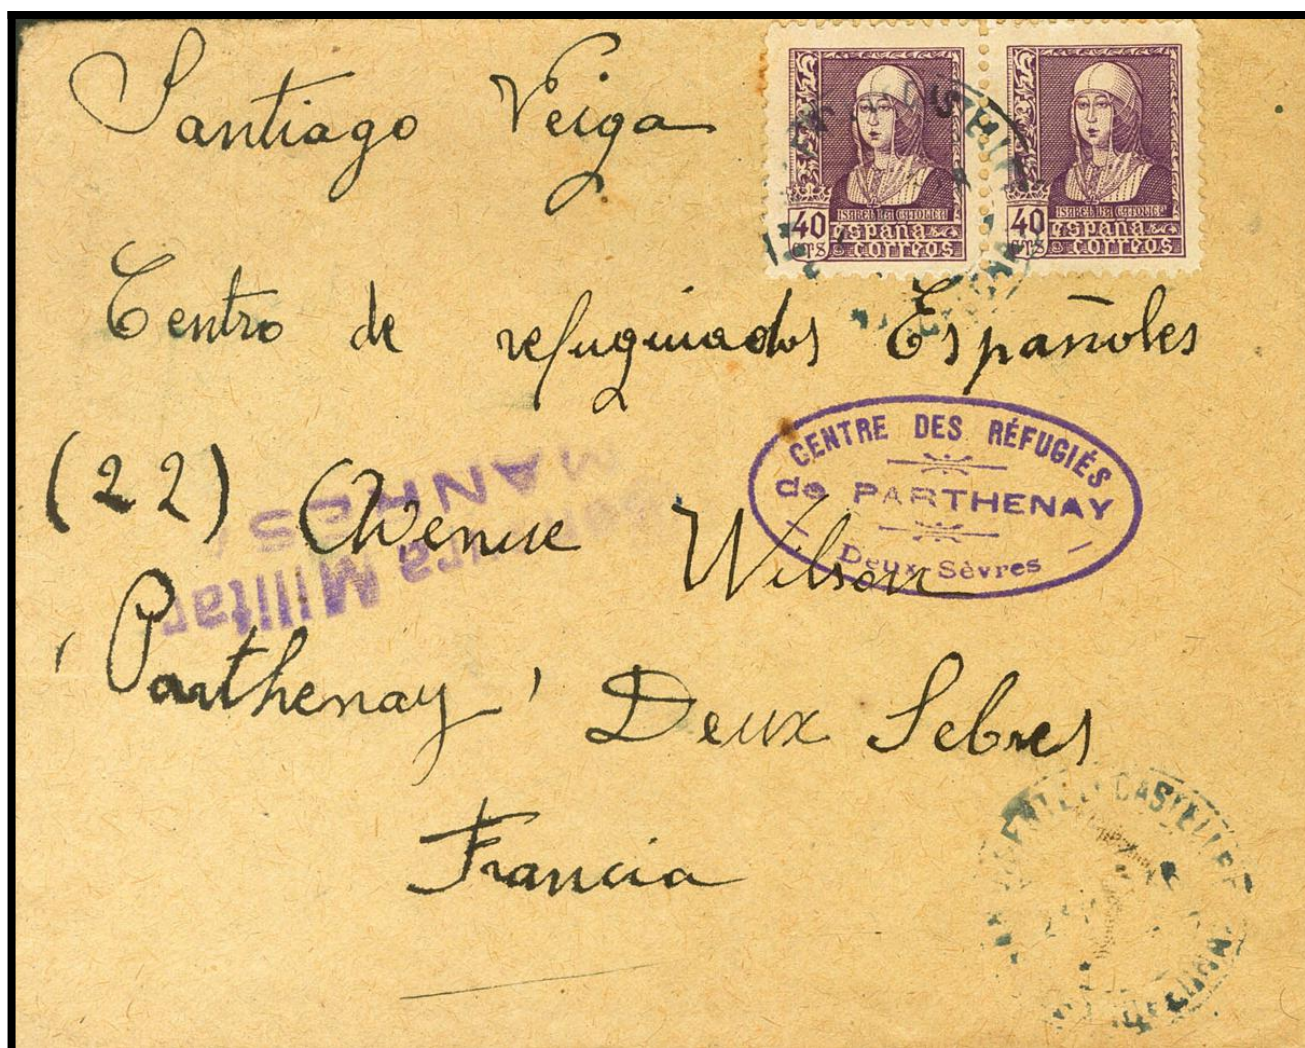 Santiago Veiga
40 CTS ISABEL LA CATOLICA ESPAÑA CORREOS
40 CTS ISABEL LA CATOLICA ESPAÑA CORREOS
Centro de refuguiados Españoles
CENTRE DES RÉFUGIÉS
de PARTHENAY
Deux-Sèvres
(22) Avenue Wilson
Militar
MANRES
'Parthenay' Deux Sebres
Francia